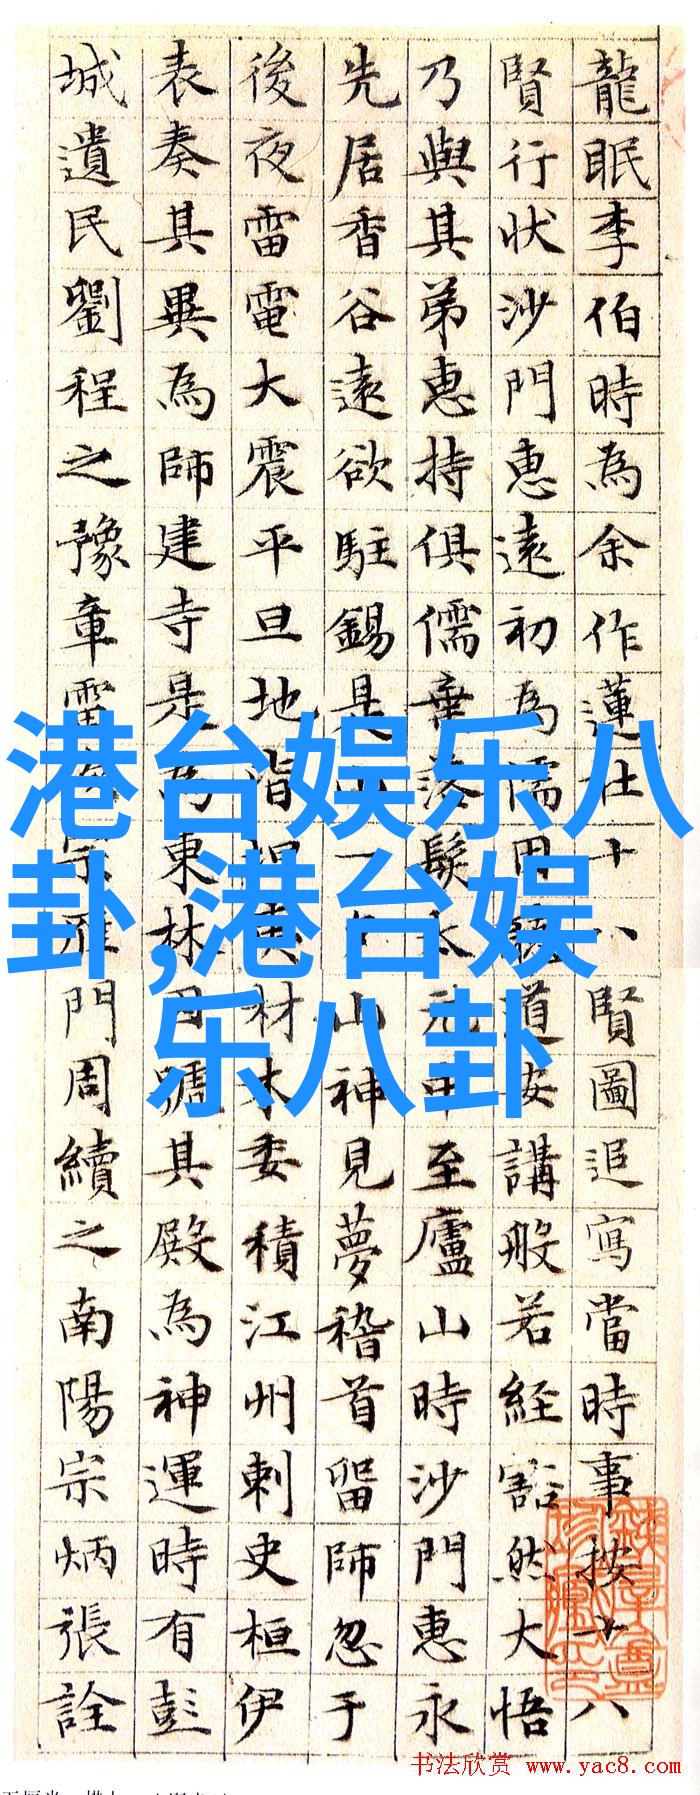 龍眠李伯時為余作蓮社十八賢圖追寫當時事按十八
賢行狀沙門惠遠初為儒因聽道安講般若經豁然大悟
乃與其弟惠持俱儒棄落髮太元中至廬山時沙門惠永
先居香谷遠欲駐錫是山一夕山神見夢稽首留師忽于
後夜雷電大震平旦地皆坦夷材木委積江州刺史桓伊
表奏其異為師建寺是為東林因號其殿為神運時有彭
城遺民劉程之豫章雷次宗雁門周續之南陽宗炳張詮
港台娱乐八
卦,港台娱
乐八卦
书法欣赏 www.yac8.com